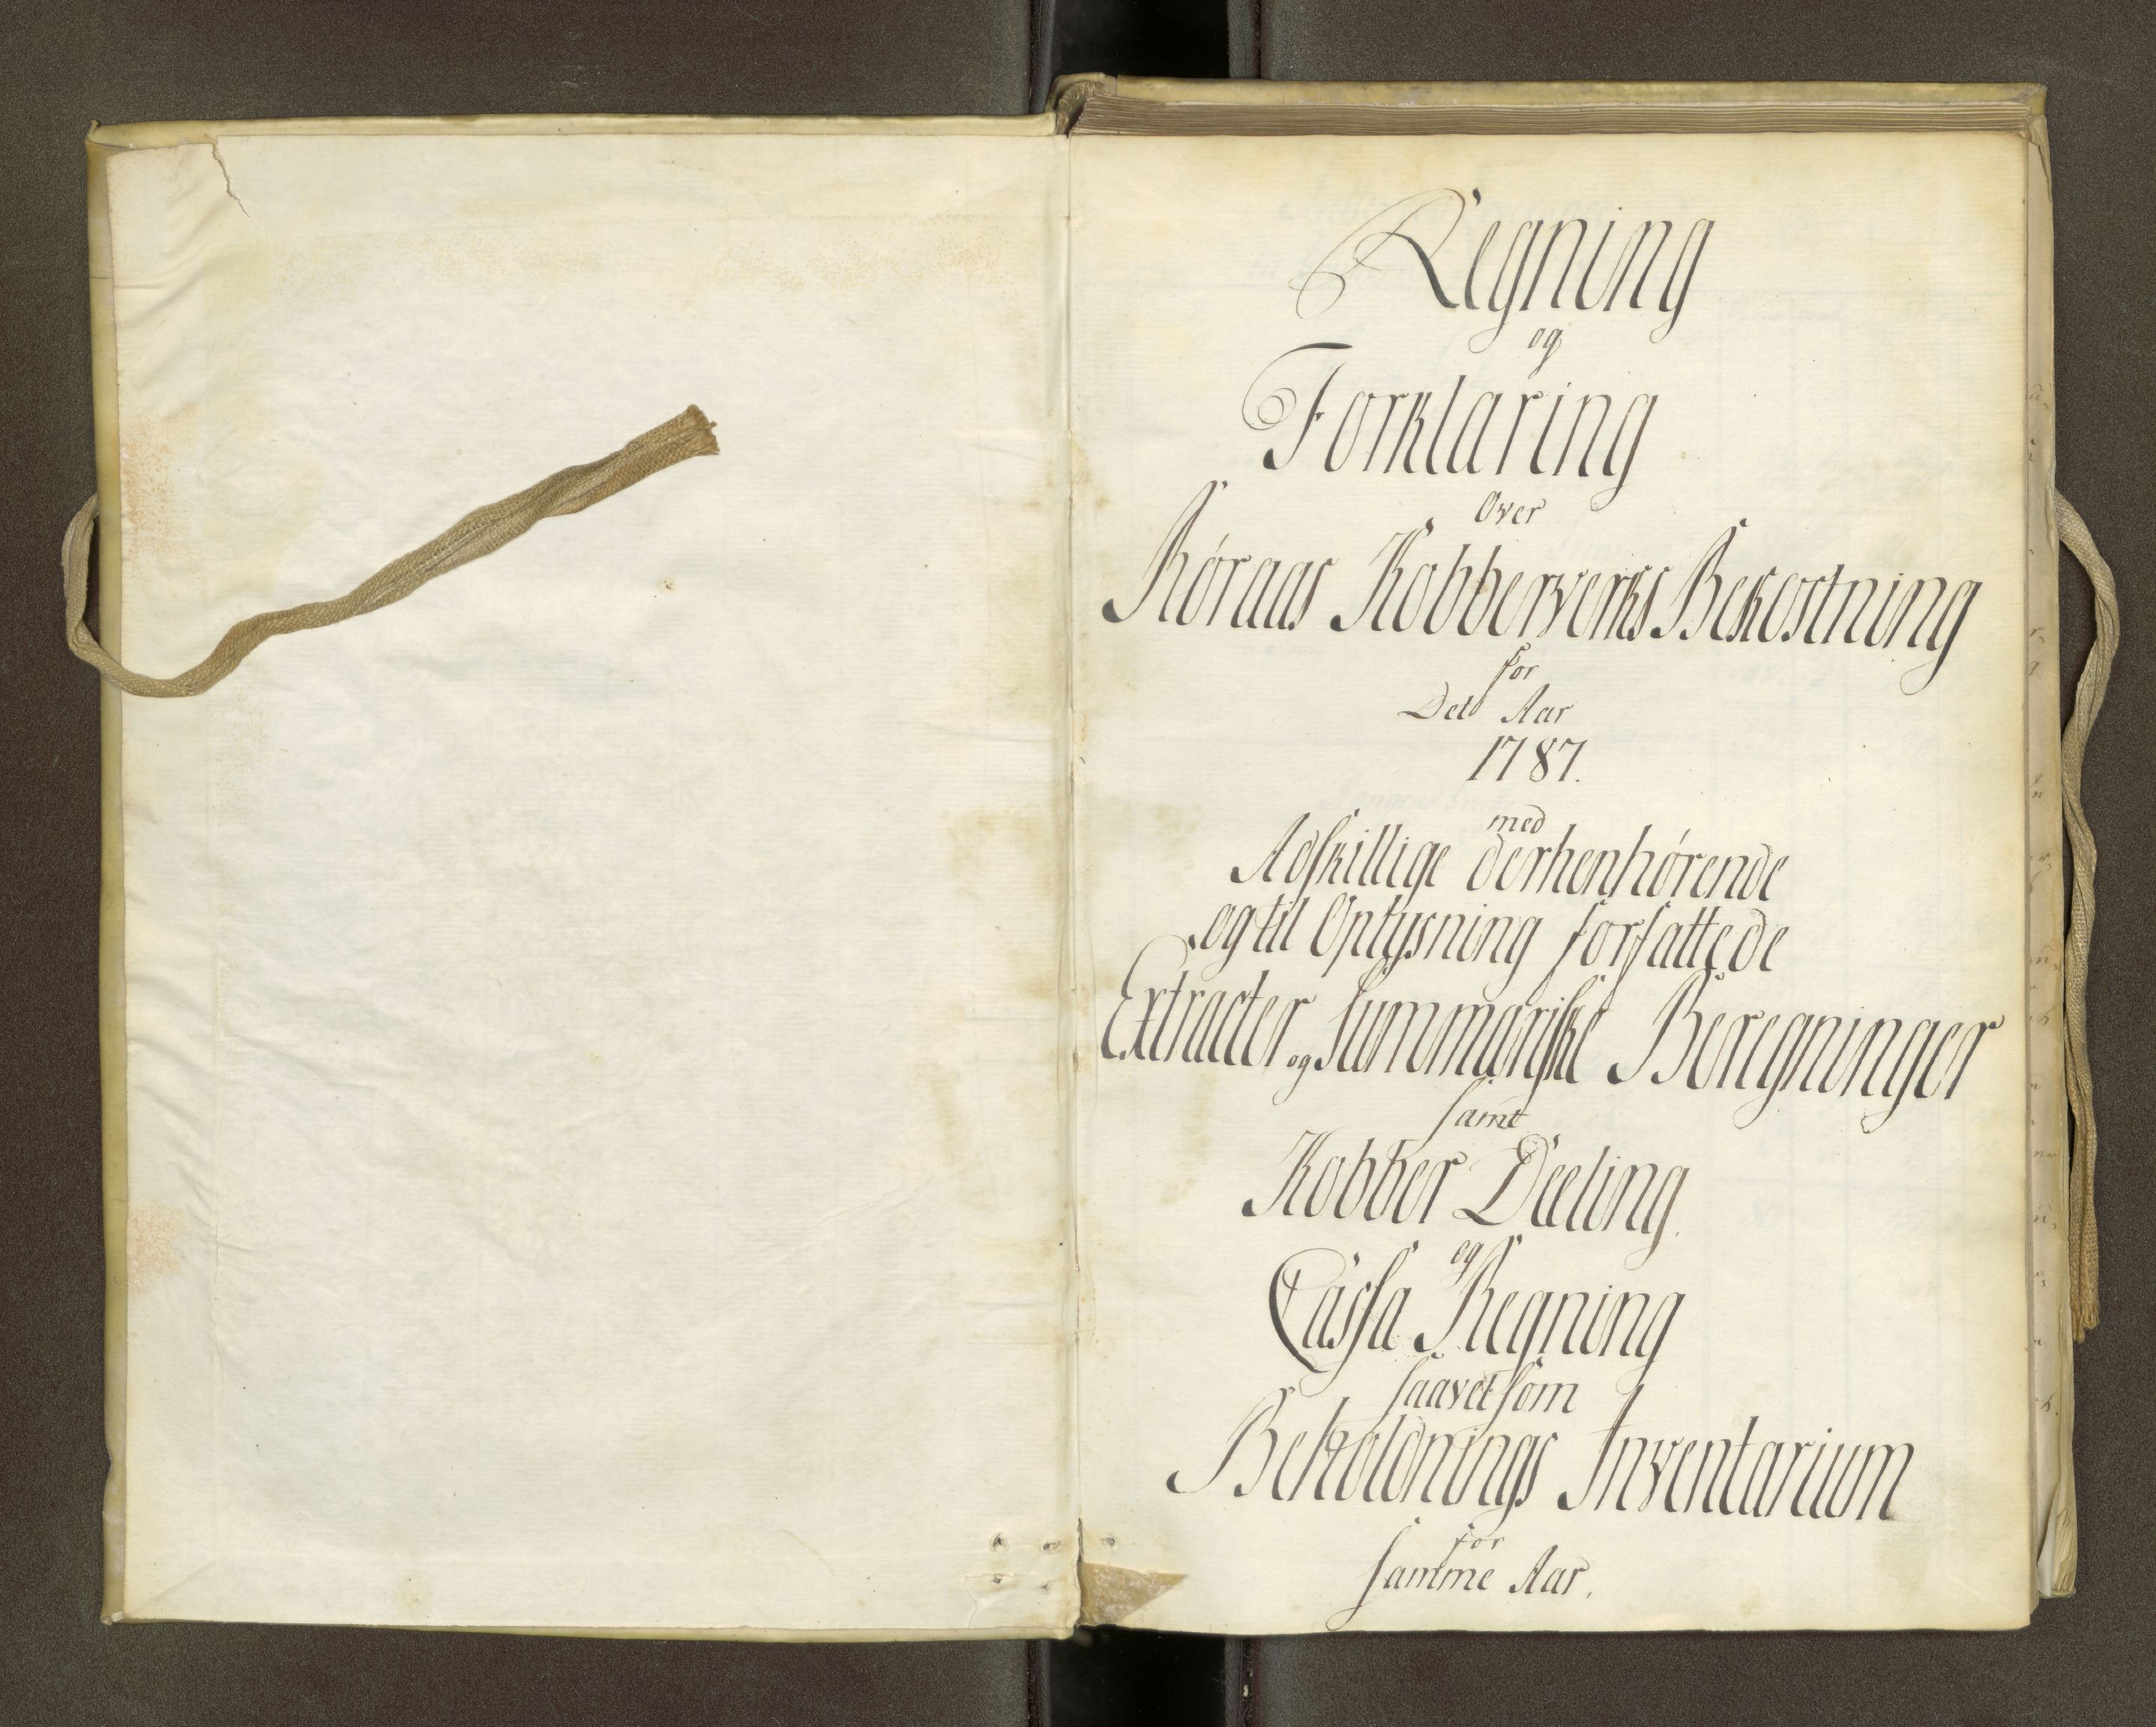 Regning
og
Forklaring
Over
Röraas Kobberverks Bekostning
for
Det Aar
1787.
med
Adskillige derhenhörende
og til Oplysning forfattede
Extracter og Summariske Beregninger
samt
Kobber Deeling
og
Cassa Regning
saavelsom
Beholdnings Inventarium
for
samme Aar.